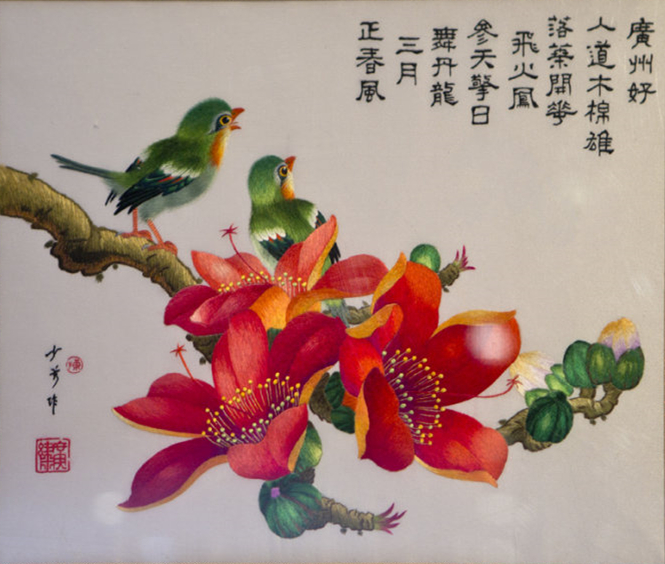 廣州好
人道木棉雄
落葉開花
飛火鳳
參天擎日
舞丹龍
三月
正春風
少芳作